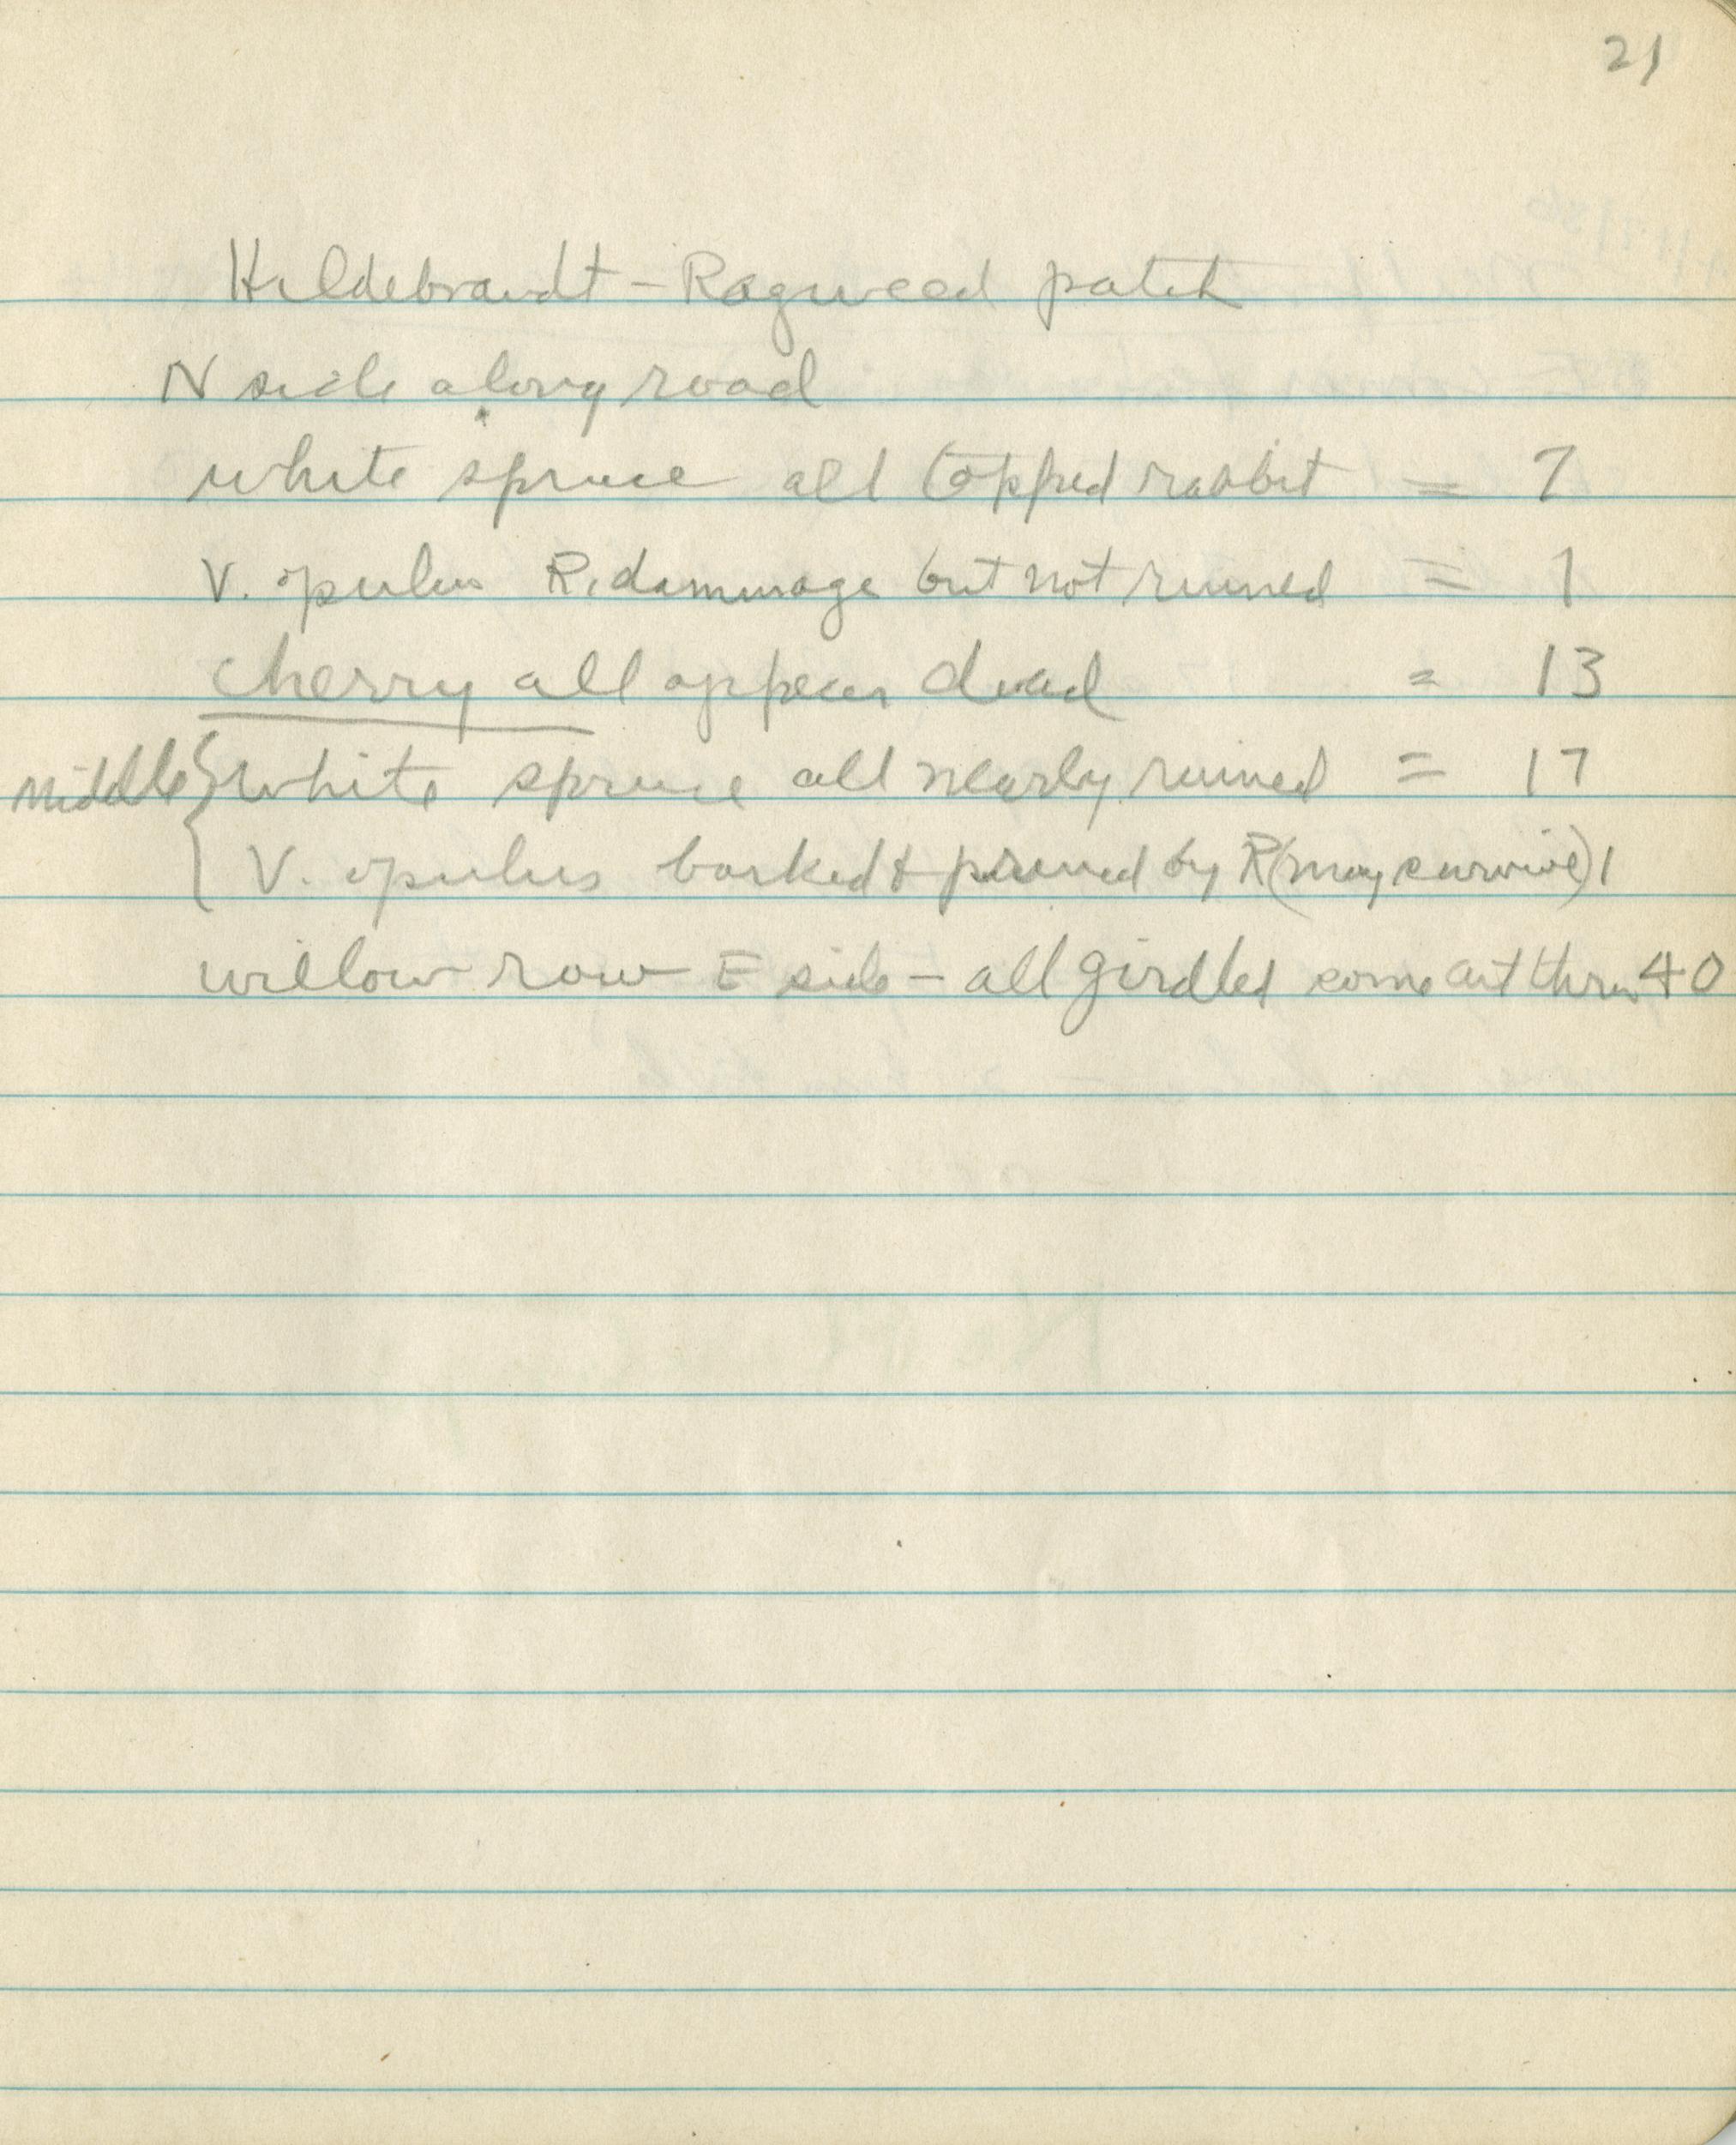 21
Hildebrandt - Ragweed patch
N side along road
white spruce all topped rabbit = 7
V. opulus R. dammage but not ruined = 1
cherry all appear dead = 13
middle { white spruce all nearly ruined = 17
{ V. opulus barked & pruned by R (may survive) 1
willow row E side - all girdled some cut thru 40